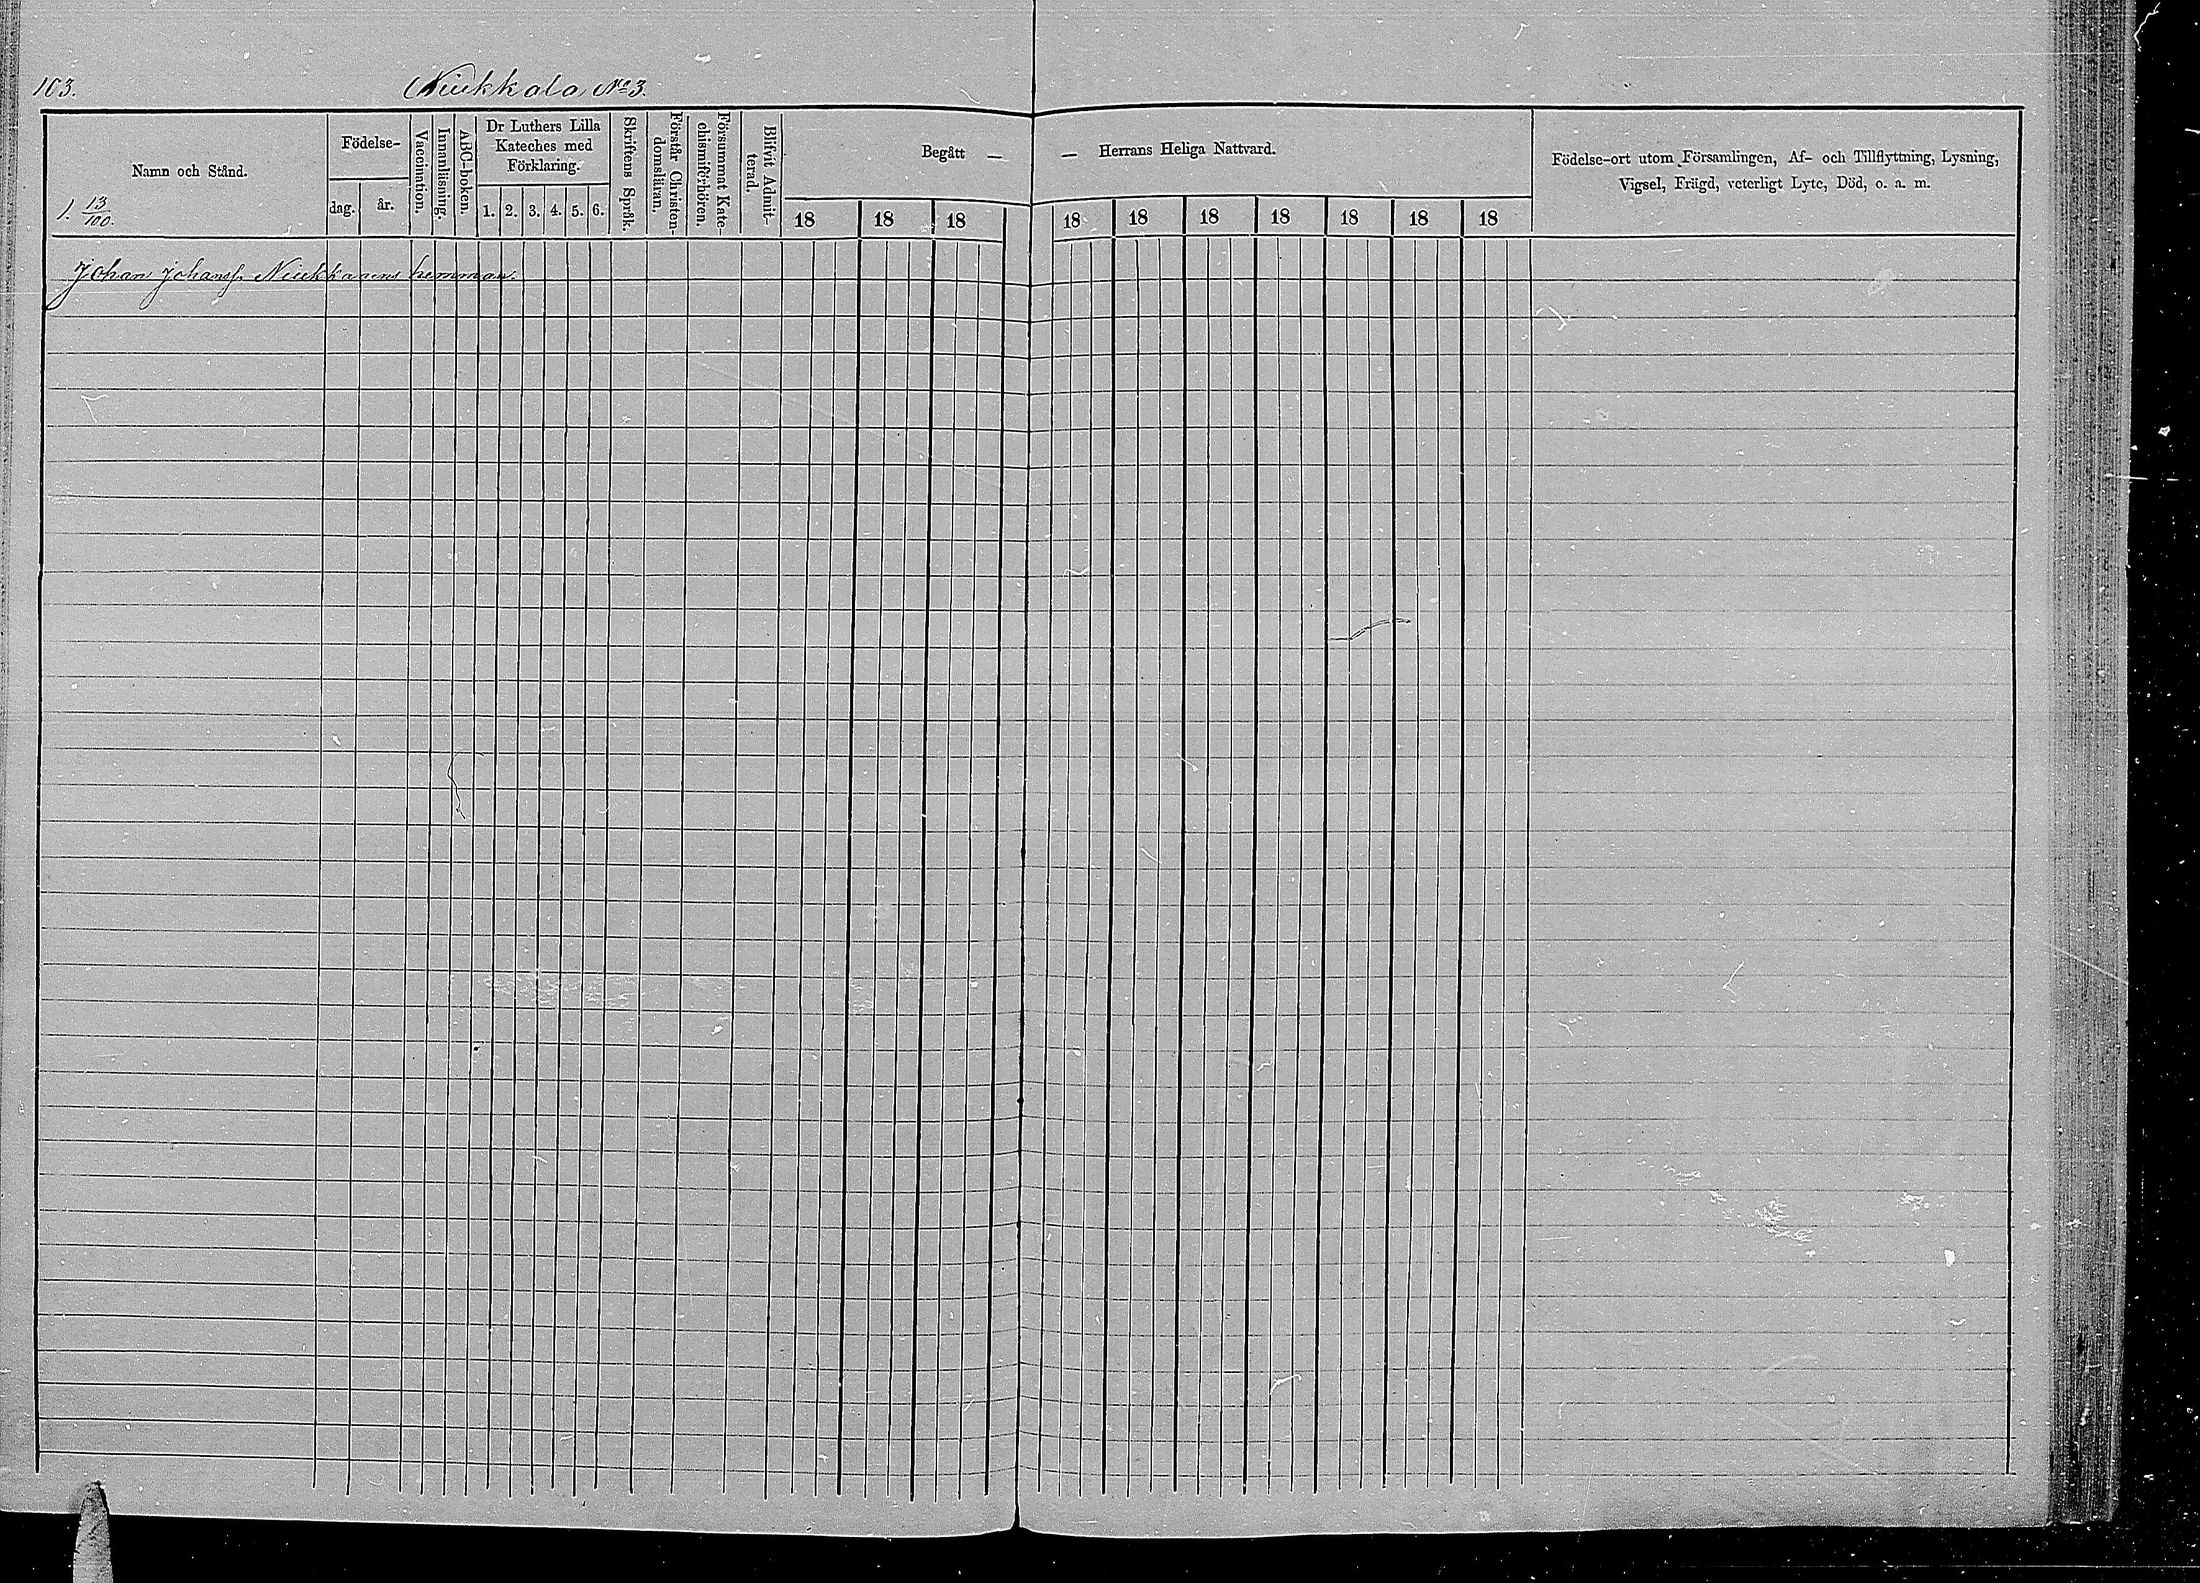 103. Niukkala No 3.
Namn och Stånd.
1. 13/100.
Födelse-
dag. år.
Vaccination.
Innanläsning.
ABC-boken.
Dr Luthers Lilla
Kateches med
Förklaring.
1. 2. 3. 4. 5. 6.
Skriftens Språk.
Förstår Christen-
domsläran.
Försummat Kate-
chismiförhören.
Blifvit Admit-
terad.
Begått — — Herrans Heliga Nattvard.
18 18 18 18 18 18 18 18 18 18
Födelse-ort utom Församlingen, Af- och Tillflyttning, Lysning,
Vigsel, Frägd, veterligt Lyte, Död, o. a. m.
Johan Johanss. Niukkanens hemman.